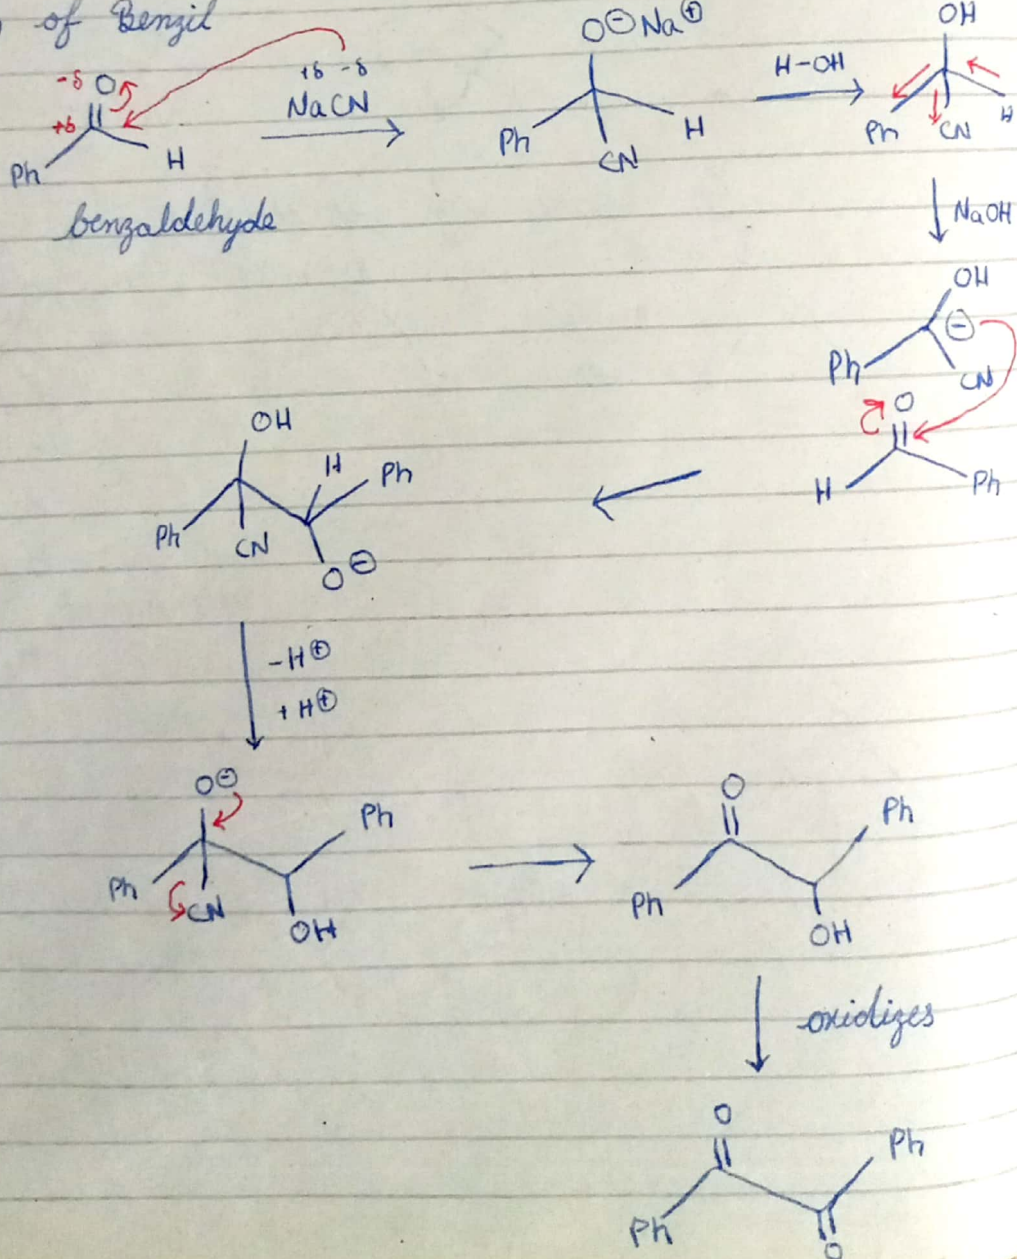 of Benzil
-δ O
+δ
Ph
H
benzaldehyde
+δ -δ
NaCN
O⊖Na⊕
Ph
H
CN
H-OH
OH
Ph
CN
H
NaOH
OH
⊖
Ph
CN
O
H
Ph
OH
H
Ph
Ph
CN
O⊖
-H⊕
+H⊕
O⊖
Ph
Ph
CN
OH
O
Ph
Ph
OH
oxidizes
O
Ph
Ph
O